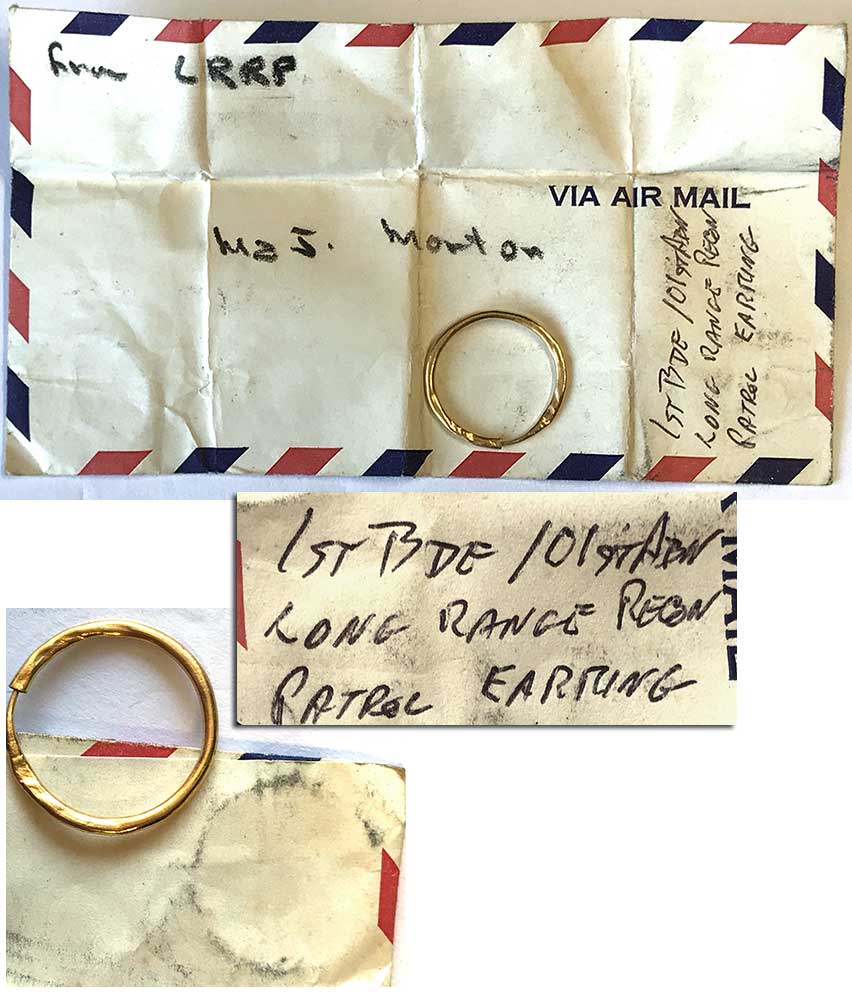 From LRRP
VIA AIR MAIL
Maj. Morton
1ST BDE 101ST ABN
LONG RANGE RECON
PATROL EARRING
1ST BDE 101ST ABN
LONG RANGE RECON
PATROL EARRING
MAIL